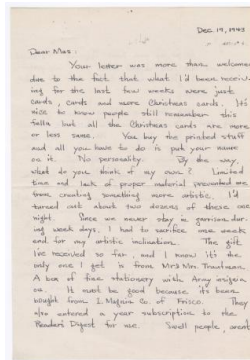 Dec. 19, 1943
Dear Mas:
Your letter was more than welcome
due to the fact that what I'd been receiv-
ing for the last few weeks were just
cards, cards and more Christmas cards. It's
nice to know people still remember this
fella but all the Christmas cards are more
or less same. You buy the printed stuff
and all you have to do is put your name
on it. No personality. By the way,
what do you think of my own? Limited
time and lack of proper material prevented me
from creating something more artistic. I'd
turned out about two dozens of these one
night. Since we never stay in garrison dur-
ing week days, I had to sacrifice one week
end for my artistic inclination. The gift
I've received so far, and I know it's the
only one I get is from Mr & Mrs. Trautman.
A box of fine stationery with Army insignia
on. It must be good because it's been
bought from I. Magnin Co. of Frisco. They
also entered a year subscription to the
Readers Digest for me. Swell people, aren't